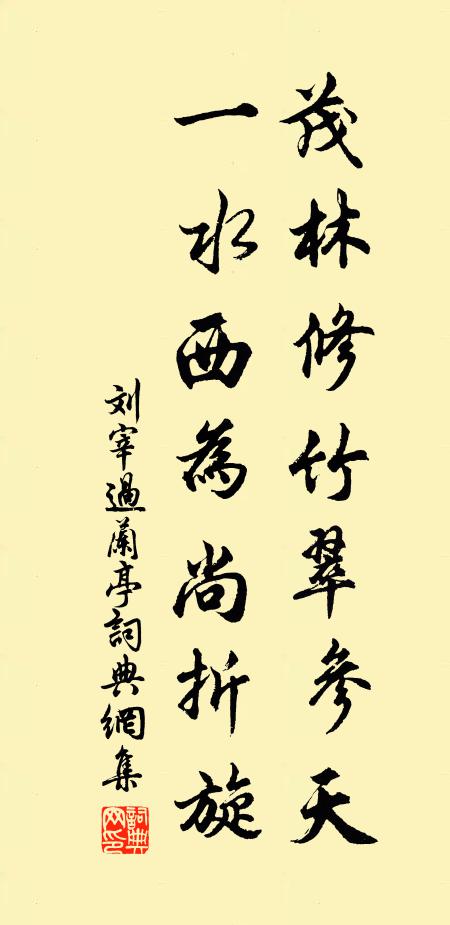 茂林修竹翠參天
一水西為尚折旋
刘宰過蘭亭詞典網集
詞典网印